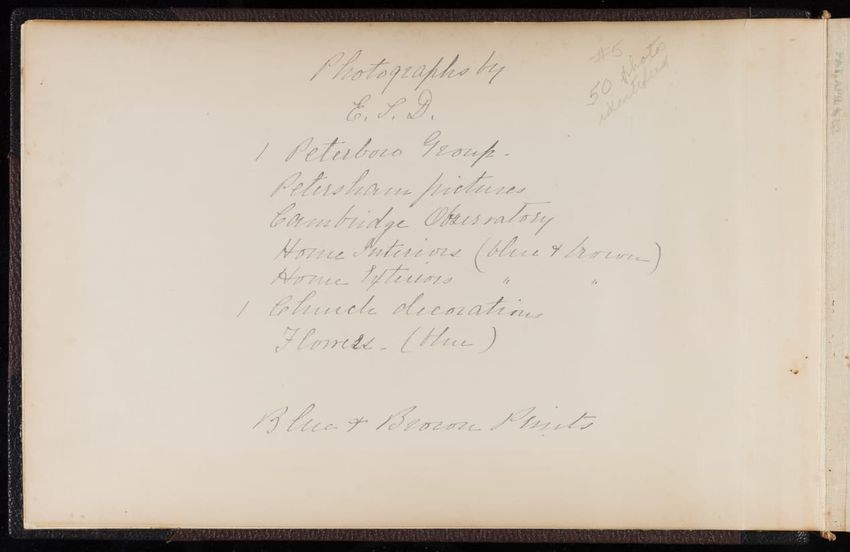 Photographs by
E. S. D.
#5
50 photos
identified
1 Peterboro Group.
Petersham pictures
Cambridge Observatory
Home Interiors (blue & brown)
Home Exteriors " "
1 Church decorations
Flowers - (blue)
Blue & Brown Prints